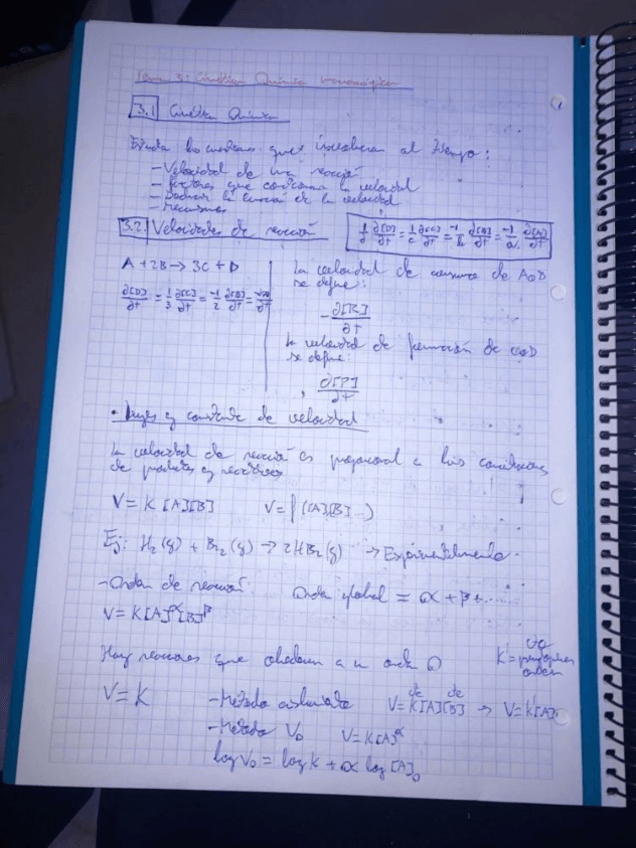 Tema 3: Cinética Química
3.1 Cinética Química
Estudia las cuestiones que involucran al tiempo:
- Velocidad de una reacción
- Factores que condicionan la velocidad
- la velocidad
- Mecanismos
3.2. Velocidades de reacción
1/d ∂[D]/∂t = 1/c ∂[C]/∂t = -1/b ∂[B]/∂t = -1/a ∂[A]/∂t
A + 2B → 3C + D
∂[D]/∂t = 1/3 ∂[C]/∂t = -1/2 ∂[B]/∂t =
La velocidad de consumo de A o B
se define:
- ∂[R]/∂t
La velocidad de formación de C o D
se define:
∂[P]/∂t
• Leyes y constante de velocidad
La velocidad de reacción es proporcional a las
de productos y reactivos
V = K [A][B]
V = f([A][B]...)
Ej: H2(g) + Br2(g) → 2HBr(g) → Experimentalmente
- Orden de reacción
Orden global = α + β + ......
V = K[A]^α[B]^β
Hay reacciones que obedecen a un orden 0
K' = orden
V = K
- Método aislamiento
V = K[A][B] → V = K'[A]
- Método V0
V = K[A]^α
log V0 = log K + α log [A]0